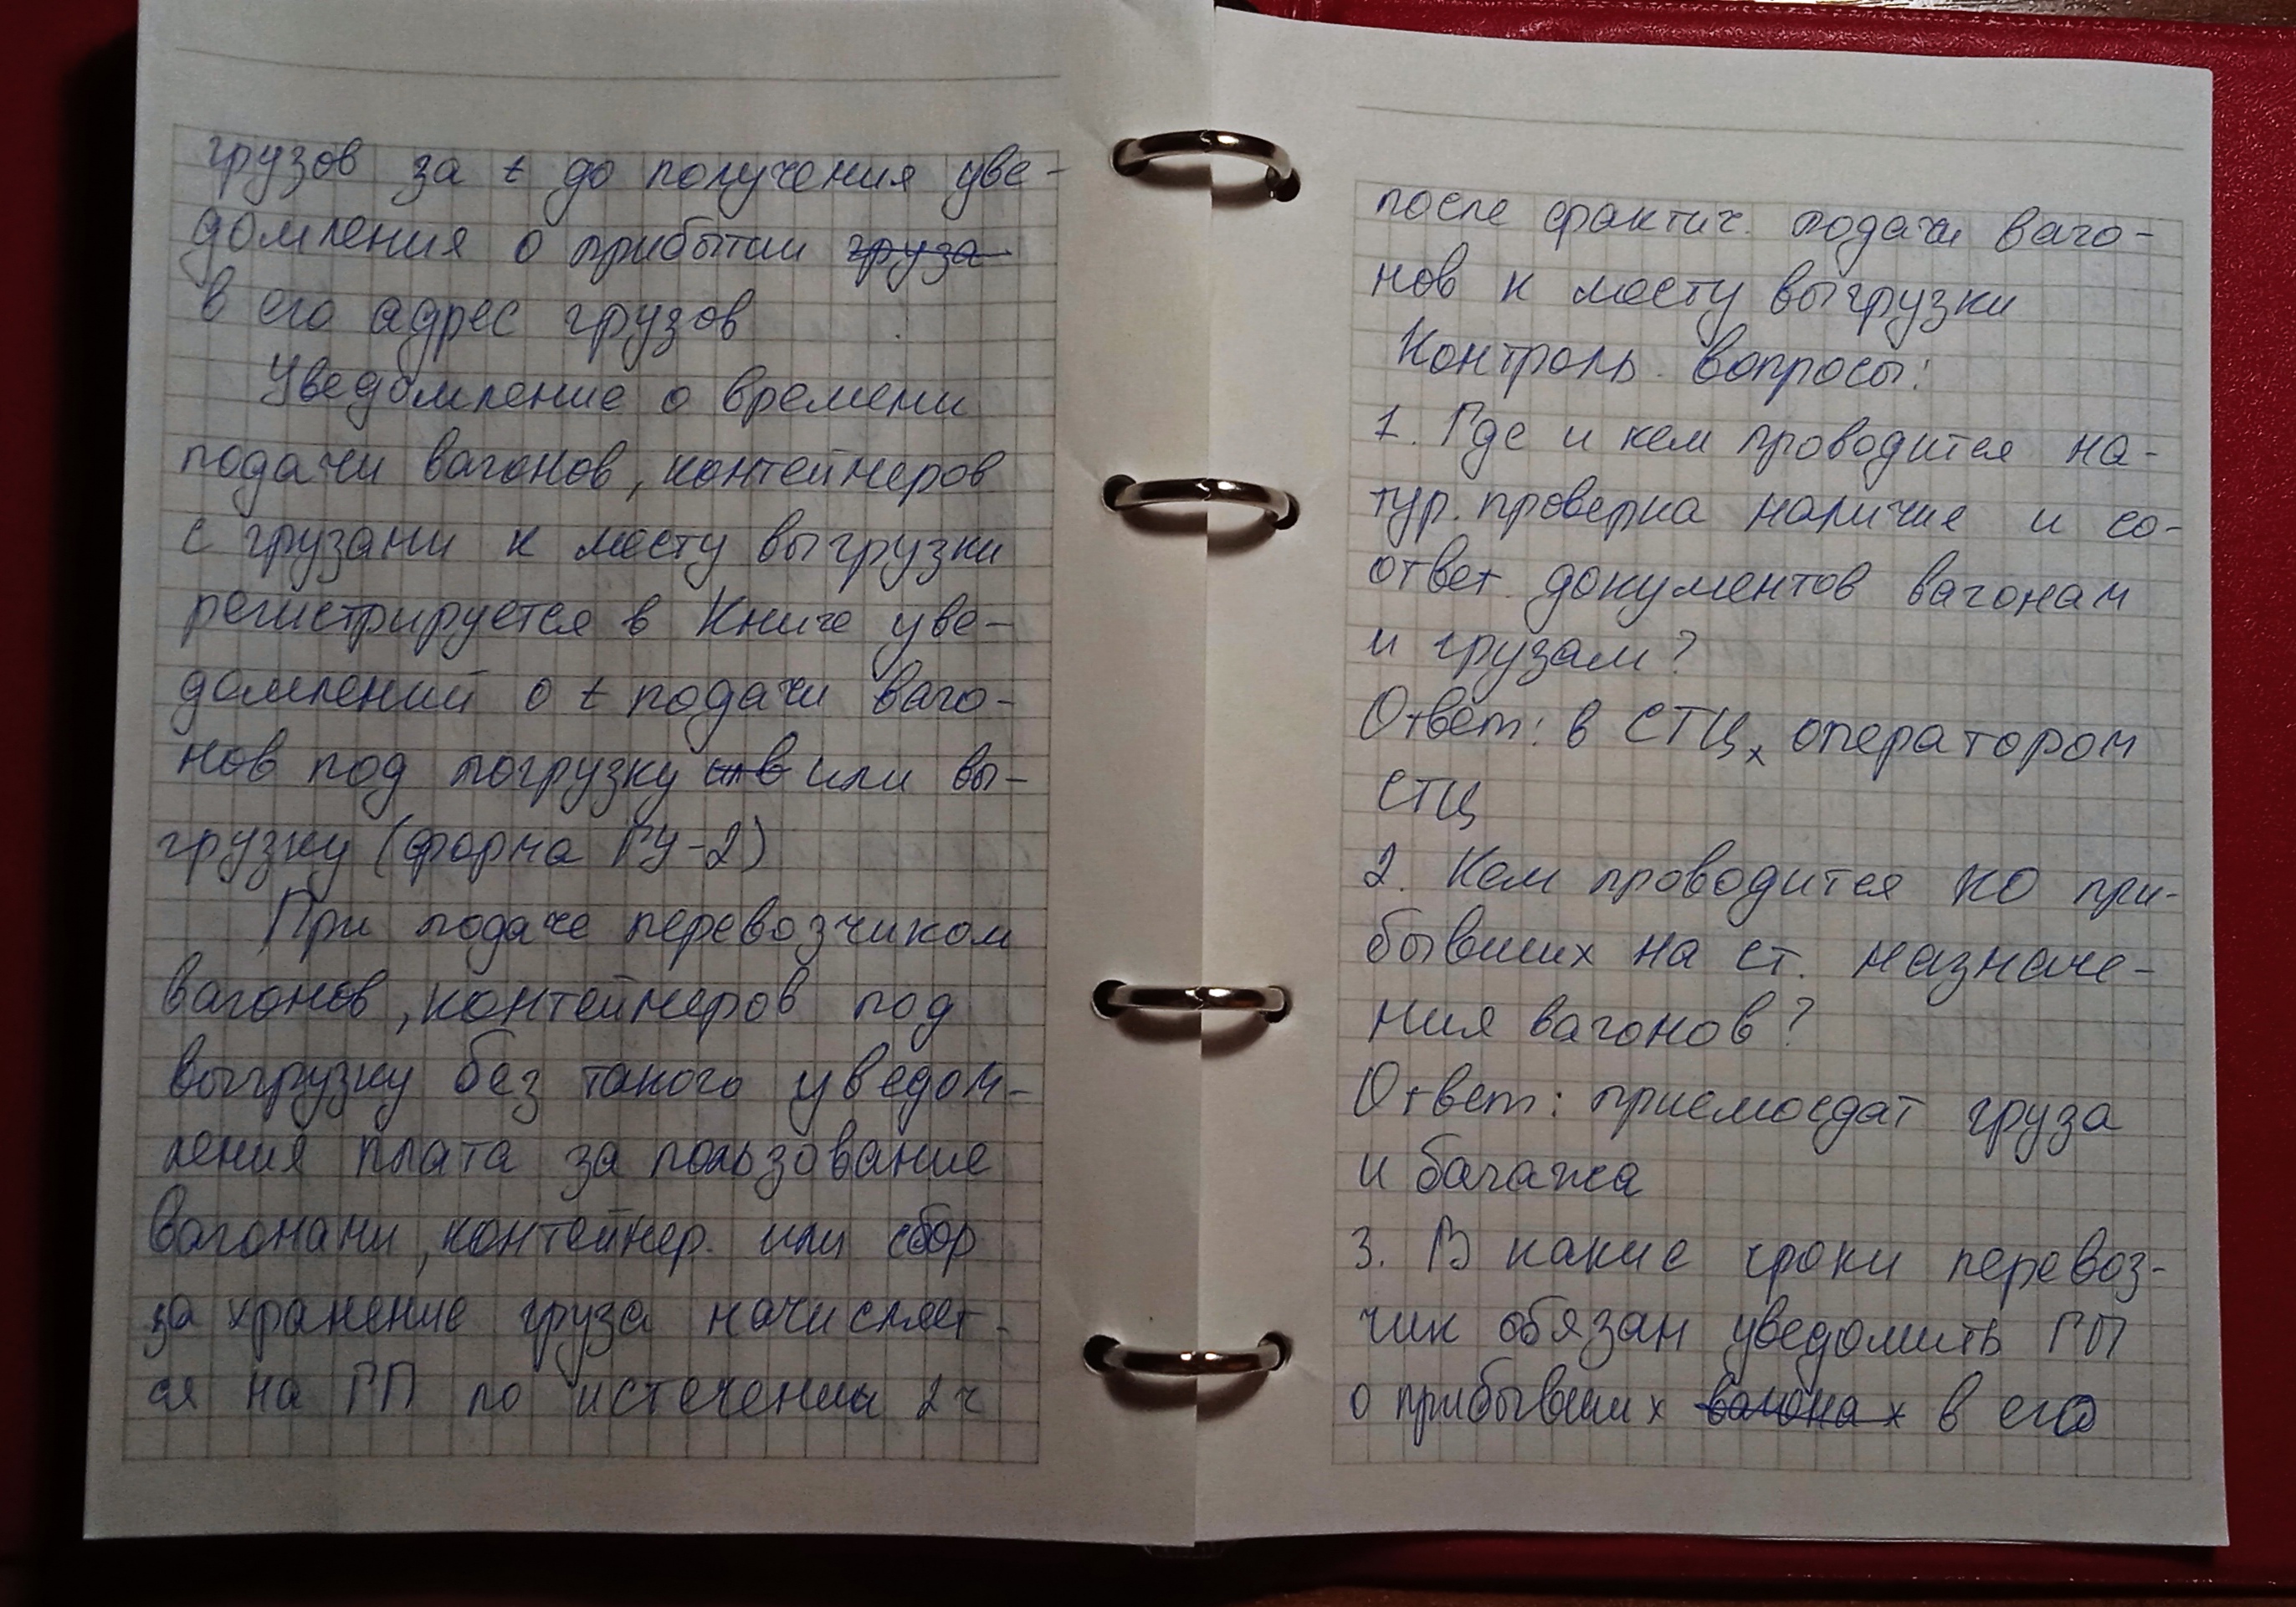 грузов за t до получения уве-
домления о прибытии груза
в его адрес грузов
Уведомление о времени
подачи вагонов, контейнеров
с грузами к месту выгрузки
регистрируется в Книге уве-
домлений о t подачи ваго-
нов под погрузку или вы-
грузку (форма ГУ-2)
При подаче перевозчиком
вагонов, контейнеров под
выгрузку без такого уведом-
ления плата за пользование
вагонами, контейнер. или сбор
за хранение груза начисляет-
ся на ГП по истечении 2 ч
после фактич. подачи ваго-
нов к месту выгрузки
Контроль. вопросы:
1. Где и кем проводится на-
тур. проверка наличия и со-
ответ. документов вагонам
и грузам?
Ответ: в СТЦ, оператором
СТЦ
2. Кем проводится КО при-
бывших на ст. назначе-
ния вагонов?
Ответ: приемосдат груза
и багажа
3. В какие сроки перевоз-
чик обязан уведомить ГП
о прибывших вагонах в его